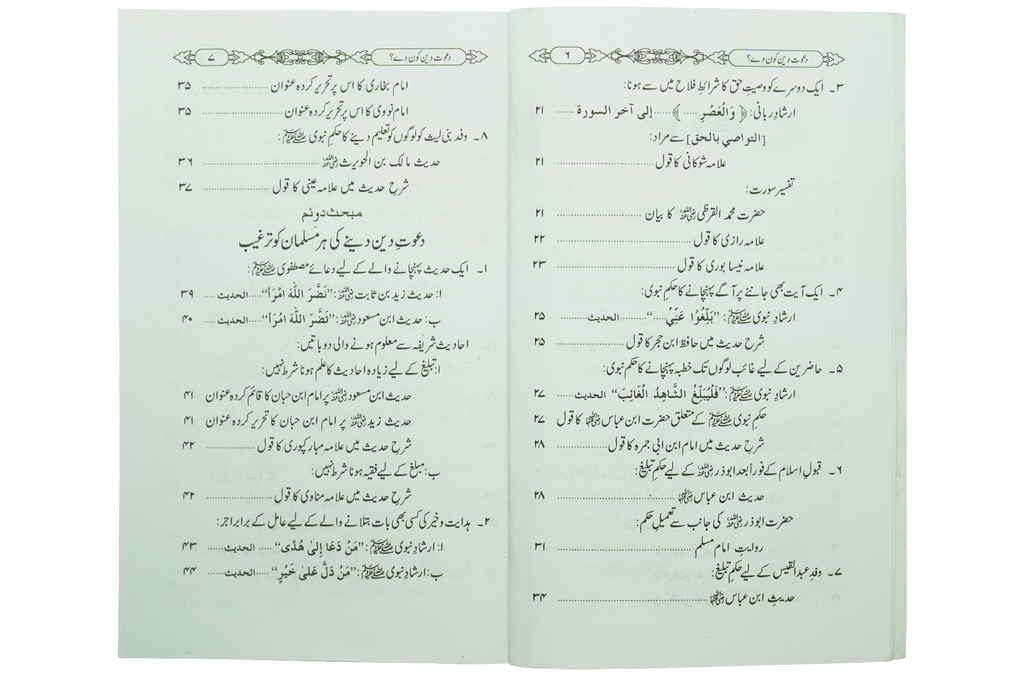 دعوت دین کون دے؟ ۶
۳۔ ایک دوسرے کو وصیتِ حق کا شرائطِ فلاح میں سے ہونا:
ارشادِ ربانی: ﴿وَالْعَصْرِ ..... ﴾ ...... إلى آخر السورة ..... ۲۱
[التواصي بالحق] سے مراد:
علامہ شوکانی کا قول ۲۱
تفسیر سورت:
حضرت محمد القرظی رضی اللہ عنہ کا بیان ۲۱
علامہ رازی کا قول ۲۲
علامہ نیسابوری کا قول ۲۳
۴۔ ایک آیت بھی جاننے پر آگے پہنچانے کا حکمِ نبوی:
ارشادِ نبوی ﷺ: ”بَلِّغُوْا عَنِّيْ.....“ ......الحديث ...... ۲۵
شرح حدیث میں حافظ ابن حجر کا قول ۲۵
۵۔ حاضرین کے لیے غائب لوگوں تک خطبہ پہنچانے کا حکم نبوی:
ارشادِ نبوی ﷺ: ”فَلْيُبَلِّغِ الشَّاهِدُ الْغَائِبَ“ الحديث ..... ۲۷
حکمِ نبوی ﷺ کے متعلق حضرت ابن عباس رضی اللہ عنہما کا قول ۲۷
شرح حدیث میں امام ابن ابی جمرہ کا قول ۲۸
۶۔ قبولِ اسلام کے فوراً بعد ابوذر رضی اللہ عنہ کے لیے حکمِ تبلیغ:
حدیث ابن عباس رضی اللہ عنہما ۲۸
حضرت ابوذر رضی اللہ عنہ کی جانب سے تعمیلِ حکم:
روایتِ امام مسلم ۳۱
۷۔ وفدِ عبدالقیس کے لیے حکمِ تبلیغ:
حدیث ابن عباس رضی اللہ عنہما ۳۴
دعوت دین کون دے؟ ۷
امام بخاری کا اس پر تحریر کردہ عنوان ۳۵
امام نووی کا اس پر تحریر کردہ عنوان ۳۵
۸۔ وفد بنی لیث کو لوگوں کو تعلیم دینے کا حکمِ نبوی ﷺ:
حدیث مالک بن الحویرث رضی اللہ عنہ ۳۶
شرحِ حدیث میں علامہ عینی کا قول ۳۷
مبحث دوئم
دعوتِ دین دینے کی ہر مسلمان کو ترغیب
۱۔ ایک حدیث پہنچانے والے کے لیے دعائے مصطفوی ﷺ:
ا: حدیث زید بن ثابت رضی اللہ عنہ: ”نَضَّرَ اللّٰهُ امْرَأً“.....الحديث ..... ۳۹
ب: حدیث ابن مسعود رضی اللہ عنہ: ”نَضَّرَ اللّٰهُ امْرَأً“.....الحديث ..... ۴۰
احادیث شریفہ سے معلوم ہونے والی دو باتیں:
ا: تبلیغ کے لیے زیادہ احادیث کا علم ہونا شرط نہیں:
حدیث ابن مسعود رضی اللہ عنہ پر امام ابن حبان کا قائم کردہ عنوان ۴۱
حدیث زید رضی اللہ عنہ پر امام ابن حبان کا تحریر کردہ عنوان ۴۱
شرح حدیث میں علامہ مبارکپوری کا قول ۴۲
ب: مبلغ کے لیے فقیہ ہونا شرط نہیں:
شرحِ حدیث میں علامہ مناوی کا قول ۴۲
۲۔ ہدایت و خیر کی کسی بھی بات بتلانے والے کے لیے عامل کے برابر اجر:
ا: ارشادِ نبوی ﷺ: ”مَنْ دَعَا إِلىٰ هُدًى“ ..... الحديث ...... ۴۳
ب: ارشادِ نبوی ﷺ: ”مَنْ دَلَّ عَلىٰ خَيْرٍ“ ..... الحديث ...... ۴۴